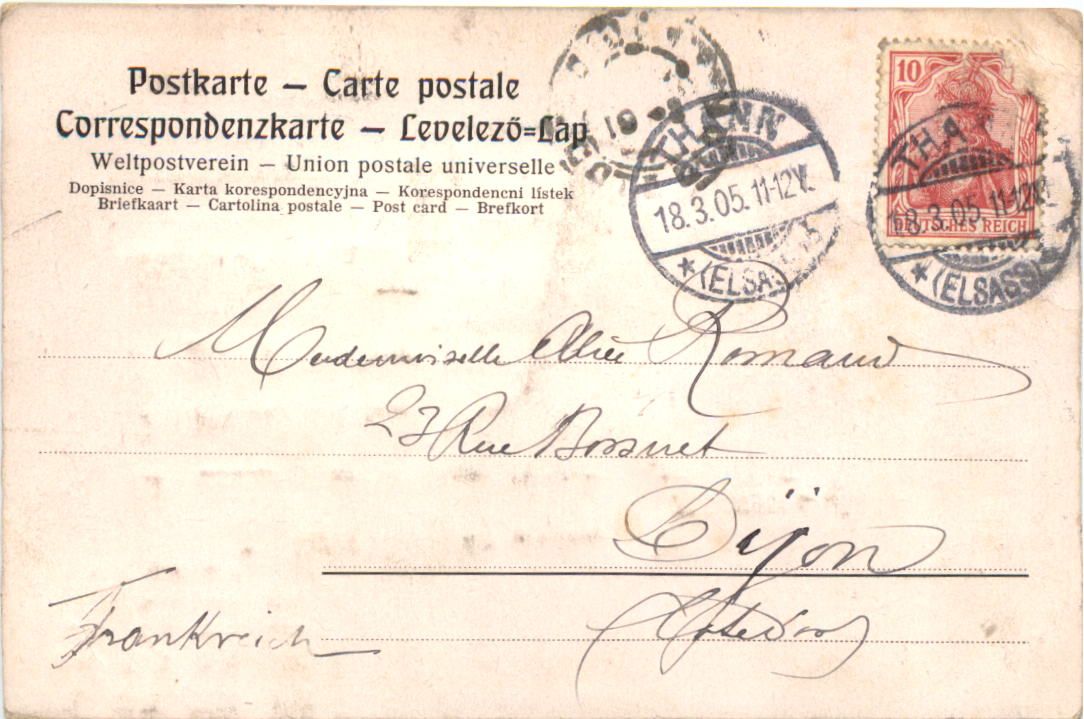 Postkarte — Carte postale
Correspondenzkarte — Levelező=Lap
Weltpostverein — Union postale universelle
Dopisnice — Karta korespondencyjna — Korespondencni lístek
Briefkaart — Cartolina postale — Post card — Brefkort
THANN
18.3.05. 11-12V.
* (ELSASS)
10
DEUTSCHES REICH
THA
18.3.05. 11-12V.
* (ELSASS)
Mademoiselle Romand
23 Rue Bossuet
Dijon
(Côte d'or)
Frankreich